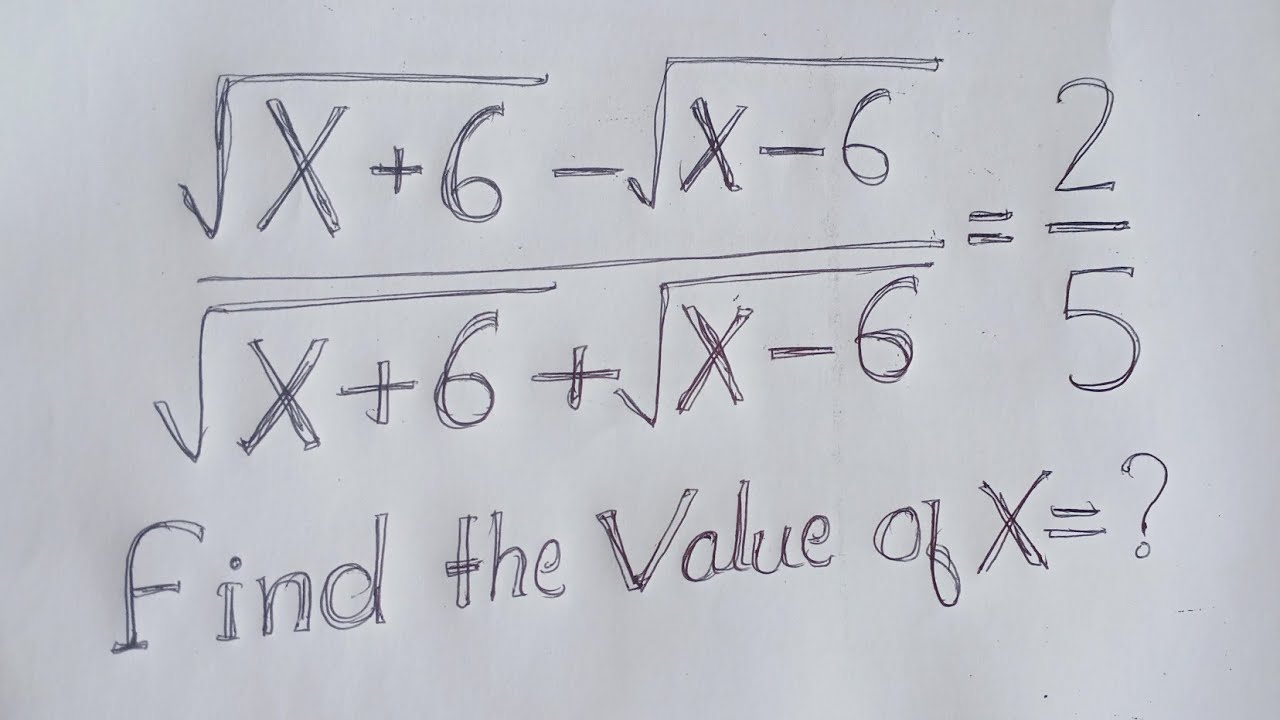 √(X+6) - √(X-6) / √(X+6) + √(X-6) = 2/5
Find the Value of X=?